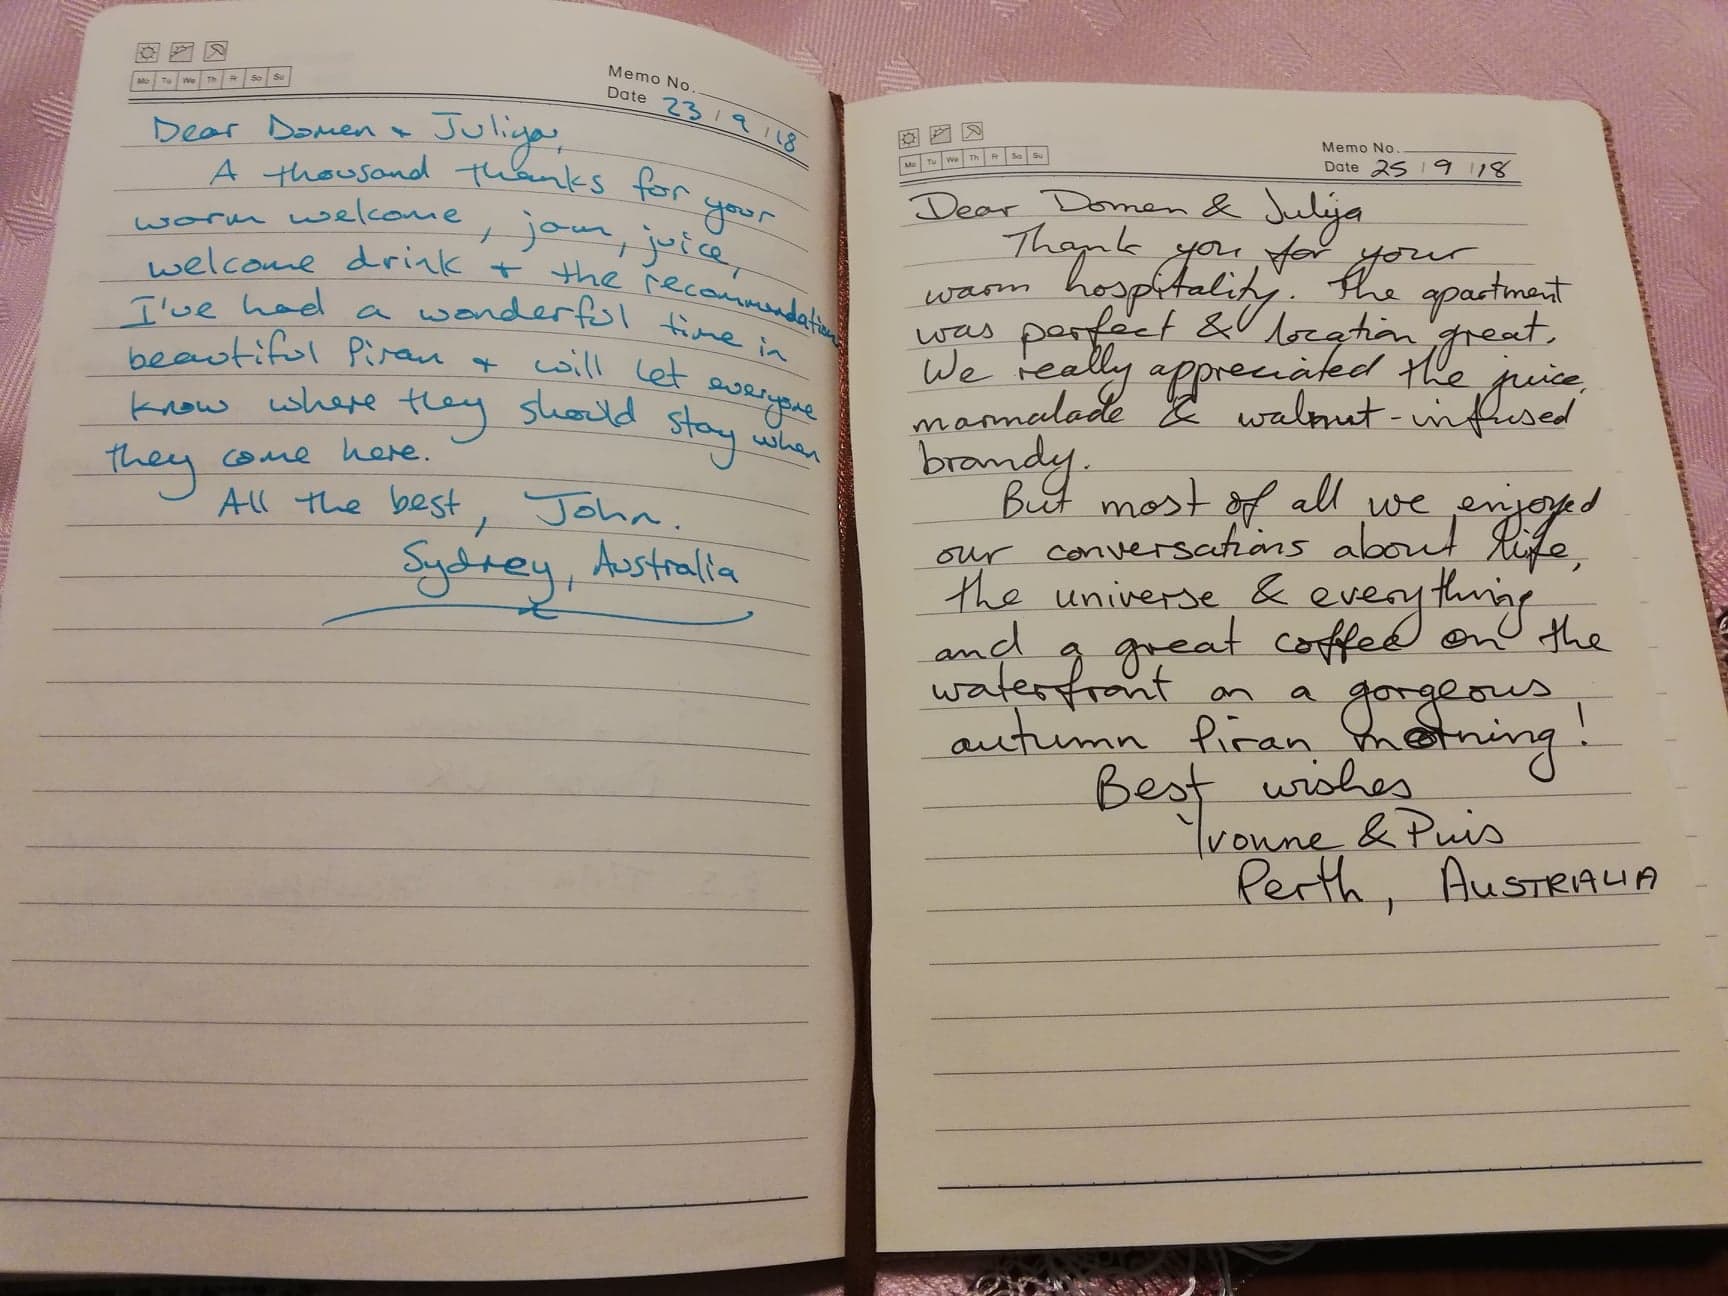 Mo Tu We Th Fr Sa Su
Memo No.
Date 23 / 9 / 18
Dear Domen + Julija,
A thousand thanks for your
warm welcome, jam, juice,
welcome drink + the recommendations
I've had a wonderful time in
beautiful Piran + will let everyone
know where they should stay when
they come here.
All the best, John.
Sydney, Australia
Mo Tu We Th Fr Sa Su
Memo No.
Date 25 / 9 / 18
Dear Domen & Julija
Thank you for your
warm hospitality. The apartment
was perfect & location great.
We really appreciated the juice,
marmalade & walnut-infused
brandy.
But most of all we enjoyed
our conversations about life,
the universe & everything
and a great coffee on the
waterfront on a gorgeous
autumn Piran morning!
Best wishes
Yvonne &
Perth, AUSTRALIA